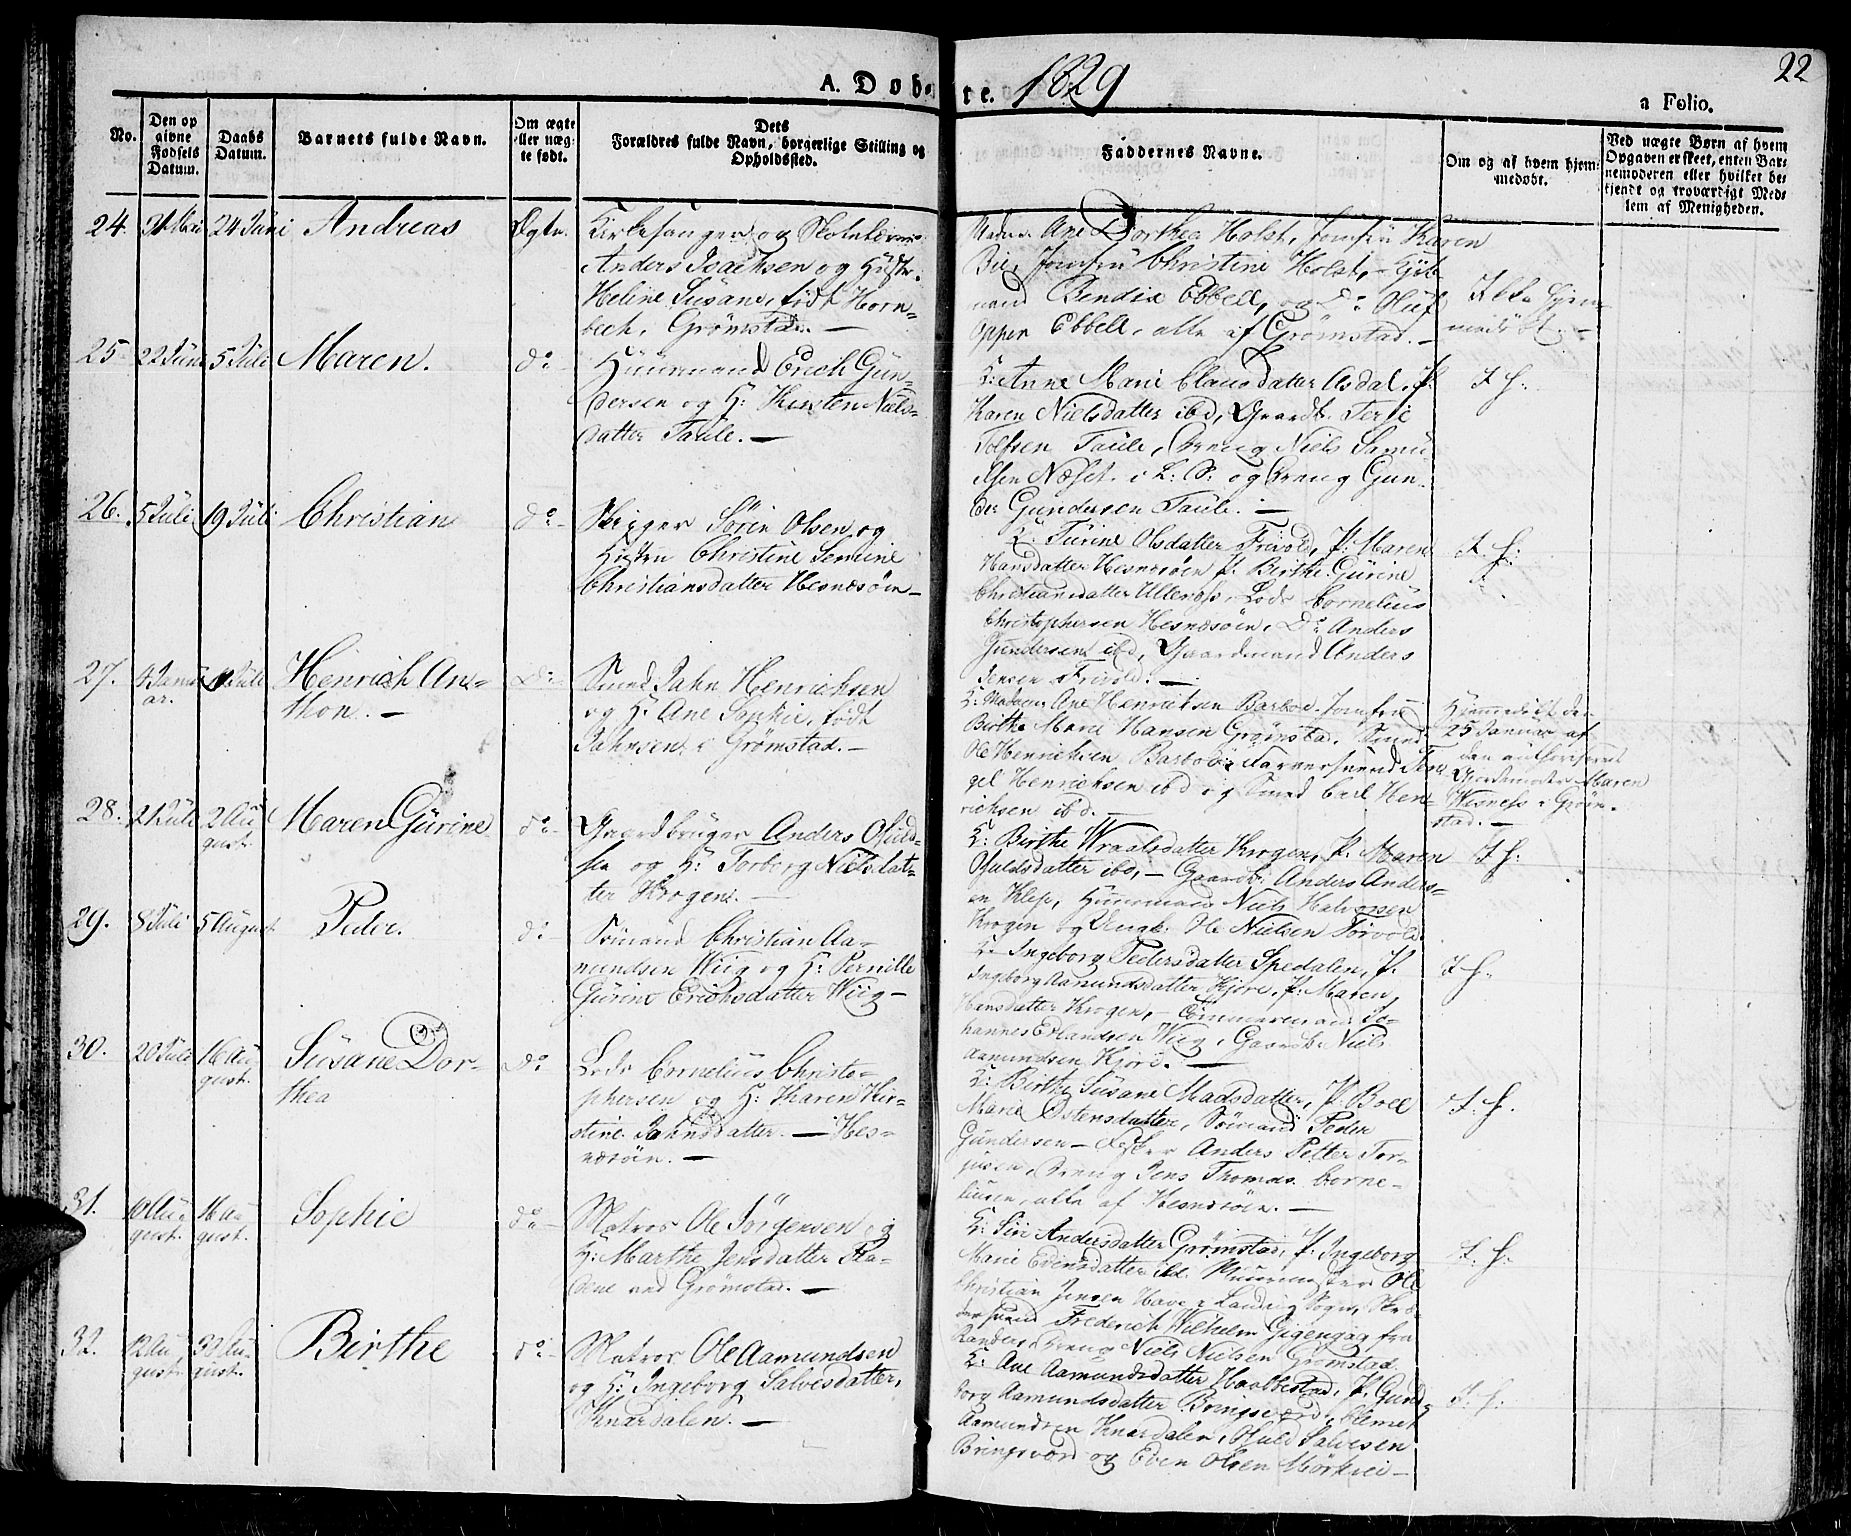 22
A. Døbte. 1829
a Folio.
No.
Den op
givne
Fødsels
Datum.
Daabs
Datum.
Barnets fulde Navn.
Om ægte
eller uæg-
te født.
Dets
Forældres fulde Navn, borgerlige Stilling og
Opholdssted.
Faddernes Navne.
Om og af hvem hjem-
medøbt.
Ved uægte Børn af hvem
Opgaven er skeet, enten Bar-
nemoderen eller hvilket be-
kjendt og troværdigt Med-
lem af Menigheden.
24. 21 Mai 24 Juni Andreas Ægte.
Kirkesanger og Skolelærer
Anders Isachsen og Hustr.
Heline Susane, født Horn-
bech, Grømstad. —
Madm. Ane Dorthea Holst, Jomfru Karen
Bie, Jomfru Christine Holst, Kjøb-
mand Bendix Ebbell, og Do Oluf
Oppen Ebbell, alle af Grømstad. —
Ikke hjem-
medøbt. —
25 22 Juni 5 Juli Maren. do
Huusmand Erich Gun-
dersen og H: Kirsten Niels-
datter Taule. —
K: Anne Marie Clausdatter Asdal, P.
Karen Nielsdatter ibd, Gaardb. Terje
Tolfsen Taule, Dreng Niels Samu-
elsen Næset i L: S: og Dreng Gun-
der Gundersen Taule. —
I. H.
26. 5 Juli 19 Juli Christian do
Skipper Sørin Olsen og
Hustru Christine Semine
Christiansdatter Hesnæsøen —
K: Turine Olsdatter Frivold, P: Maren
Hansdatter Hesnesøen P. Birthe Gurine
Christiansdatter Ullenæs, Lods Cornelius
Christophersen Hesnæsøen, Do Anders
Gundersen ibd, Gaardmand Anders
Jensen Frivold. —
I. H:
27. Januar Juli Henrich An-
thon. — Do
Smed Jahn Henrichsen
og H: Ane Sophie, født
Jahnsen, i Grømstad. —
K: Madam Ane Henriksen Barboe, Jomfru
Birthe Marie Hansen Grømstad, Smed
Ole Henrichsen Barboe, Farversvend Ten-
gel Henrichsen ibd og Smed Carl Hen-
richsen ibd. —
Hjemmedøbt den
25 Januar af
den authoriserede
Gjordemoder Maren
Wesness i Grøm-
stad. —
28. 21 Juli 2 Au
gust. Maren Gurine do
Gaardbruger Anders Ofulds-
sen og H: Torborg Nielsdat-
ter Krogen. —
K: Birthe Wraalsdatter Krogen, P. Maren
Ofuldsdatter ibd, — Gaardb: Anders Anders-
en Klep, Huusmand Niels Halvorsen
Krogen og Ungk. Ole Nielsen Torvold.
I H.
29. 8 Juli 5 August Peder. do
Sømand Christian Aa-
mundsen Wiig og H: Pernille
Gurine Erichsdatter Wiig —
K: Ingeborg Pedersdatter Spedalen, P.
Ingborg Aamundsdatter Kjøre, P: Maren
Hansdatter Krogen, — Tømmermand Jo-
hannes Erlandsen Wiig, Gaardb. Niels
Aamundsen Kjøre. —
I H.
30. 20 Juli 16 Au
gust. Susane Dor-
thea do
Lods Cornelius Christo-
phersen og H: Karen Kir-
stine Jahnsdatter. — Hes-
næsøen. —
K: Birthe Susane Madsdatter, P: Boel
Marie Østensdatter, Sømand Peder
Gundersen — Fisker Anders Petter Ter-
jusen, Dreng Jens Thomas Corne-
liusen, alle af Hesnesøen. —
I. H.
31. 10 Au
gust. 16 Au
gust. Sophie do
Matros Ole Jørgensen og
H: Marthe Jensdatter Fla-
dene ved Grømstad. —
K: Siri Andersdatter Grømstad, P. Ingeborg
Marie Edensdatter ibd. Muurmester Ole
Christian Jensen Have i Landvig Sogn, Skræ-
dersvend Frederich Wilhelm Gigengag fra
Randers, Dreng Niels Nielsen Grømstad.
I. H.
32. 12 Au
gust. 30 Au-
gust. Birthe do
Matros Ole Aamundsen
og H: Ingeborg Salvesdatter,
Knardalen. —
K: Ane Aamundsdatter Haabbestad, P. Gund-
borg Aamundsdatter Bringsværd, Clemet
Aamundsen Knardalen, Ofuld Salvesen
Bringsværd og Even Olsen Mørkvei —
I. H.